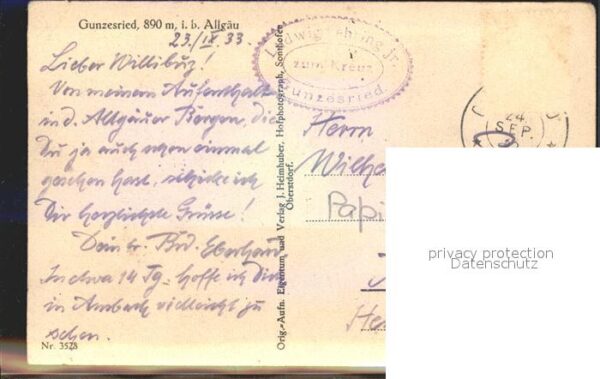 Gunzesried, 890 m, i. b. Allgäu
23./IX 33.
Lieber Willibuz!
Von meinem Aufenthalt
in d. Allgäuer Bergen, die
Du ja auch schon einmal
gesehen hast, schicke ich
Dir herzlichste Grüsse!
Dein tr. Frd. Eberhard
In etwa 14 Tg. hoffe ich Dich
in Ambach vielleicht zu
sehen.
Nr. 3528
Orig.-Aufn. Eigentum und Verlag J. Heimhuber, Hofphotograph, Sonthofen
Oberstdorf.
Ludwig jr.
zum Kreuz
Gunzesried.
24.
SEP.
Herrn
Papi
He
privacy protection
Datenschutz